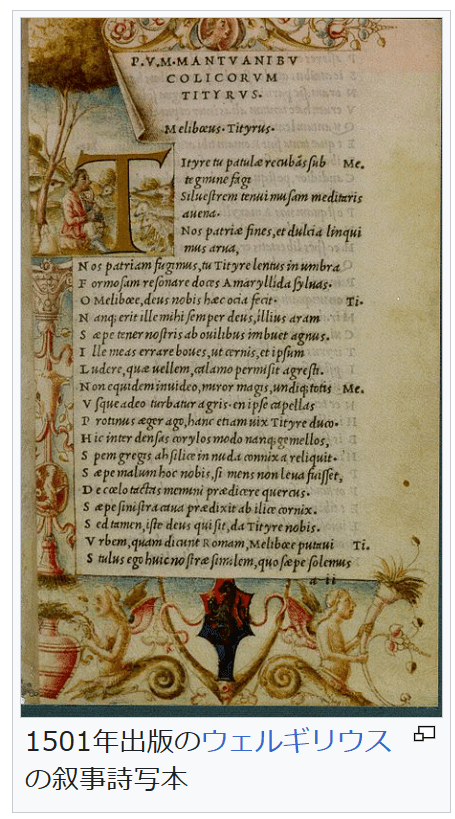 P.V.M.MANTVANI BV
COLICORVM
TITYRVS.
Melibœus. Tityrus.
TItyre tu patulæ recubãs sub Me.
tegmine fagi
Siluestrem tenui musam meditaris
auena.
Nos patriæ fines, et dulcia linqui
mus arua,
Nos patriam fugimus, tu Tityre lentus in umbra
Formosam resonare doces Amaryllida syluas.
O Melibœe, deus nobis hæc ocia fecit. Ti.
Nanq; erit ille mihi semper deus, illius aram
Sæpe tener nostris ab ouilibus imbuet agnus.
Ille meas errare boues, ut cernis, et ipsum
Ludere, quæ uellem, calamo permisit agresti.
Non equidem inuideo, miror magis, undiq; totis Me.
Vsque adeo turbatur agris. en ipse capellas
Protinus æger ago, hanc etiam uix Tityre duco.
Hic inter densas corylos modo nanq; gemellos,
Spem gregis ah silice in nuda connixa reliquit.
Sæpe malum hoc nobis, si mens non leua fuisset,
De cœlo tactas memini prædicere quercus.
Sæpe sinistra caua prædixit ab ilice cornix.
Sed tamen, iste deus qui sit, da Tityre nobis.
Vrbem, quam dicunt Romam, Melibœe putaui Ti.
Stulus ego huic nostræ similem, quo sæpe solemus
a ii
1501年出版のウェルギリウス
の叙事詩写本